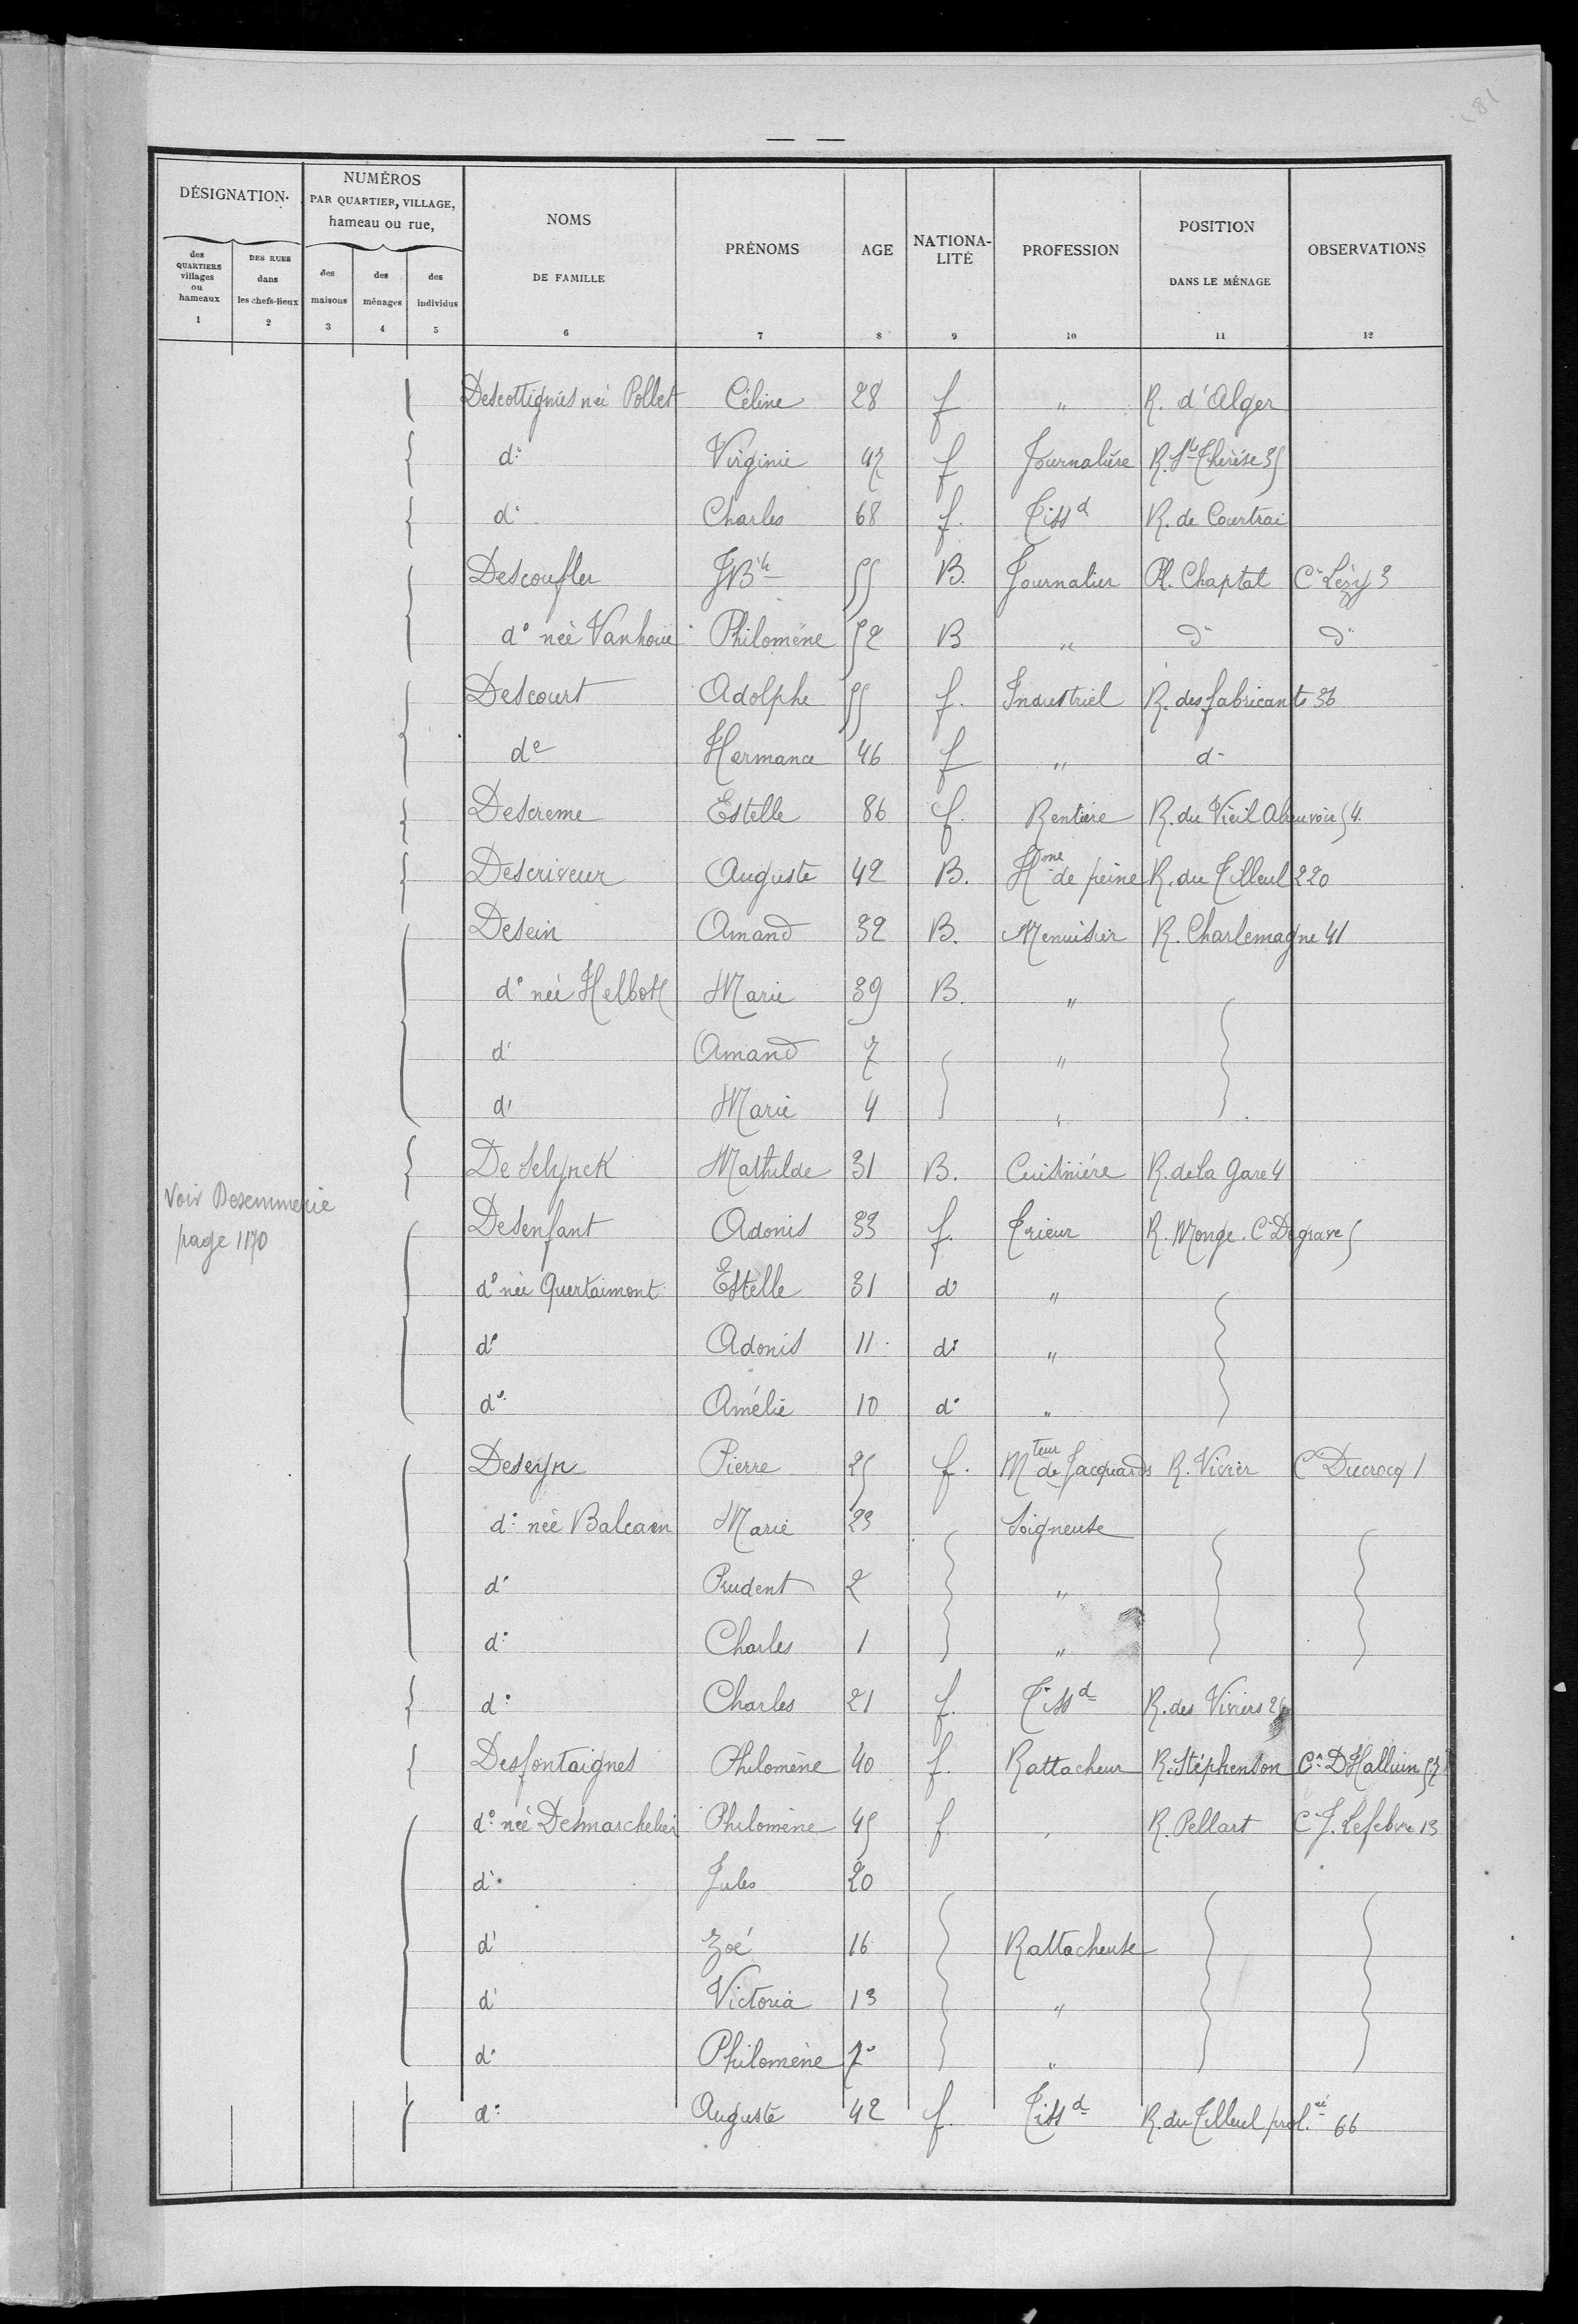 181
— —
DÉSIGNATION
NUMÉROS PAR QUARTIER, VILLAGE, hameau ou rue,
NOMS DE FAMILLE
PRÉNOMS
AGE
NATIONA-LITÉ
PROFESSION
POSITION DANS LE MÉNAGE
OBSERVATIONS
des QUARTIERS villages ou hameaux
DES RUES dans les chefs-lieux
des maisons
des ménages
des individus
1 2 3 4 5 6 7 8 9 10 11 12
Descottignies née Pollet Céline 28 f " R. d'Alger
d° Virginie 47 f Journalière R. Ste Thérèse 35
d° Charles 68 f. Tissd R. de Courtrai
Descoufler JBte 55 B. Journalier Pl. Chaptal Cr Lézy 3
d° née Vanhoue Philomène 52 B " d° d°
Descourt Adolphe 55 f. Industriel R. des fabricants 36
d° Hermance 46 f " d°
Descreme Estelle 86 f. Rentière R. du Vieil Abreuvoir 54.
Descriveur Auguste 42 B. Hme de peine R. du Tilleul 220
Desein Amand 32 B. Menuisier R. Charlemagne 41
d° née Helbott Marie 39 B. "
d° Amand 7 "
d° Marie 4 "
De Selynck Mathilde 31 B. Cuisinière R. de la Gare 4
Voir Desemmerie
page 1170
Desenfant Adonis 33 f. Trieur R. Monge. Cr Degrave 5
d° née Quertaimont Estelle 31 d° "
d° Adonis 11 d° "
d° Amélie 10 d° "
Deseyn Pierre 25 f. Mteur de Jacquards R. Vivier Cr Ducrocq 1
d° née Balcaen Marie 23 Soigneuse
d° Prudent 2 "
d° Charles 1 "
d° Charles 21 f. Tissd R. des Viviers
Desfontaignes Philomène 40 f. Rattacheur R. Stéphenson Cr D'Halluin 57
d° née Desmarchelier Philomène 45 f " R. Pellart Cr J. Lefebvre 13
d° Jules 20
d° Zoé 16 Rattacheuse
d° Victoria 13 "
d° Philomène 7 "
d° Auguste 42 f. Tissd R. du Tilleul prol.ée 66